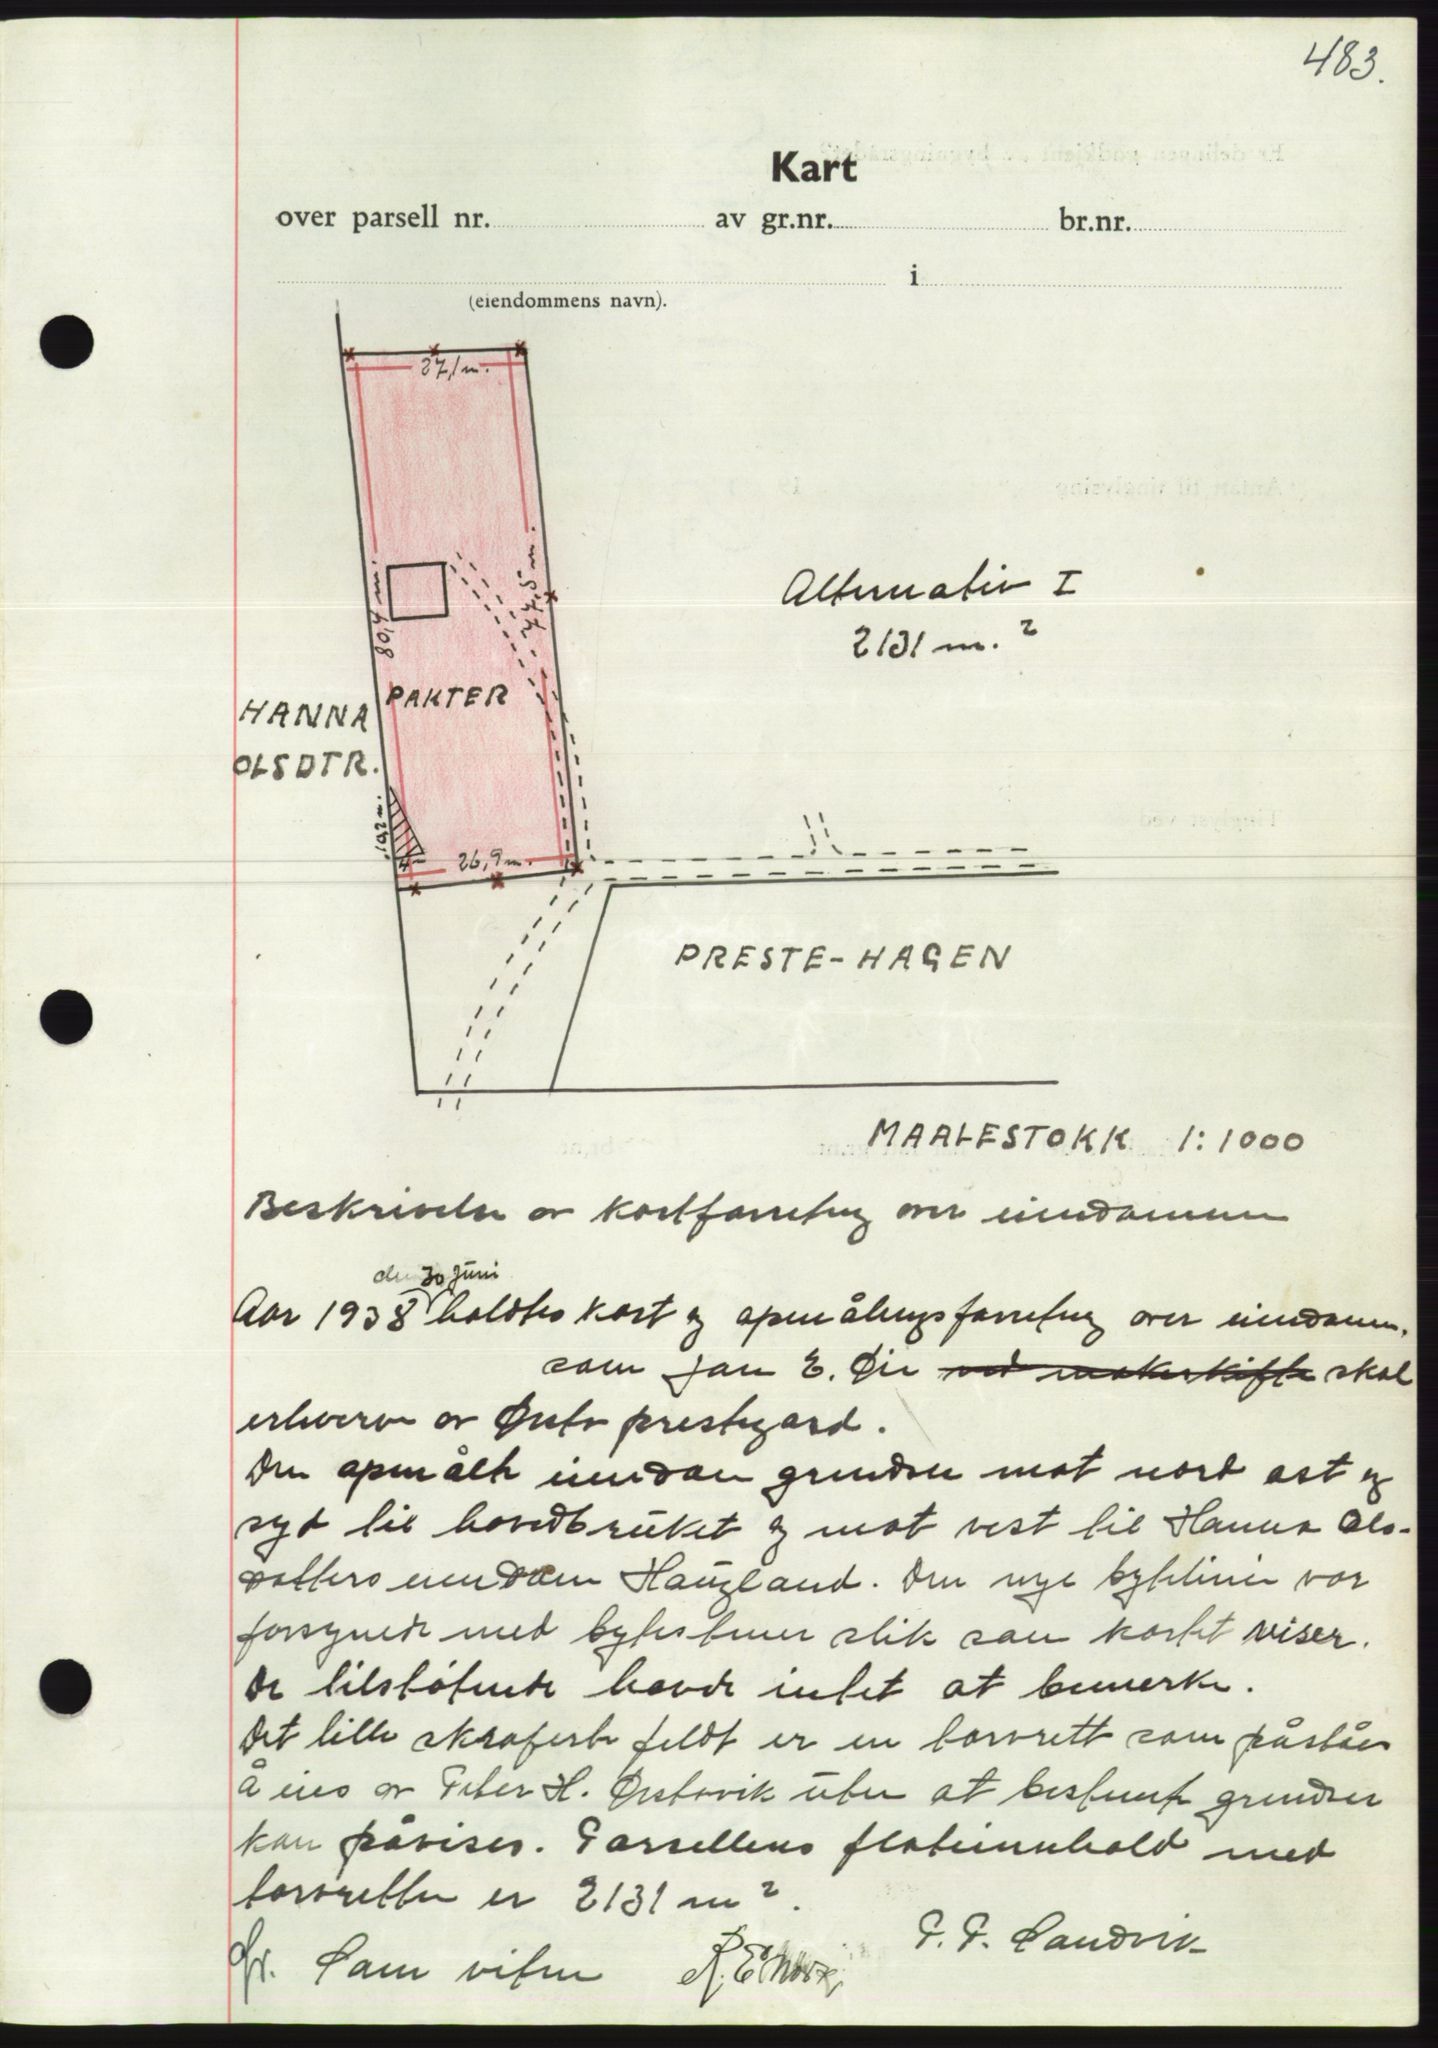 483.
Kart
over parsell nr. av gr.nr. br.nr.
i
(eiendommens navn).
27,1 m.
80,4 m.
77,5 m.
Alternativ I
2131 m.²
PAKTER
HANNA
OLSDTR.
10,2 m.
4 m
26,9 m.
PRESTE-HAGEN
MAALESTOKK 1:1000
Beskrivelse av kartforretng over eiendommen
den 30 juni
Aar 1938 holdtes kart og opmålingsforretng over eiendomm.
som Jan E. Øie ved makeskifte skal
erhverve av Ørsta prestegard.
Den opmålte eiendom grendser mot nord ost og
syd til hovedbruket og mot vest til Hanna Ols-
datters eiendom Haugland. Den nye bytelinie var
forsynede med bytesteiner slik som kartet viser.
De tilstøtende havde intet at bemerke.
Det lille skraferte feldt er en torvrett som påståes
å eies av Peter H. Ørstavik uten at bestemte grendser
kan påvises. Parsellens flateinnhold med
torvretten er 2131 m².
P. P. Sandvik
Som vitne